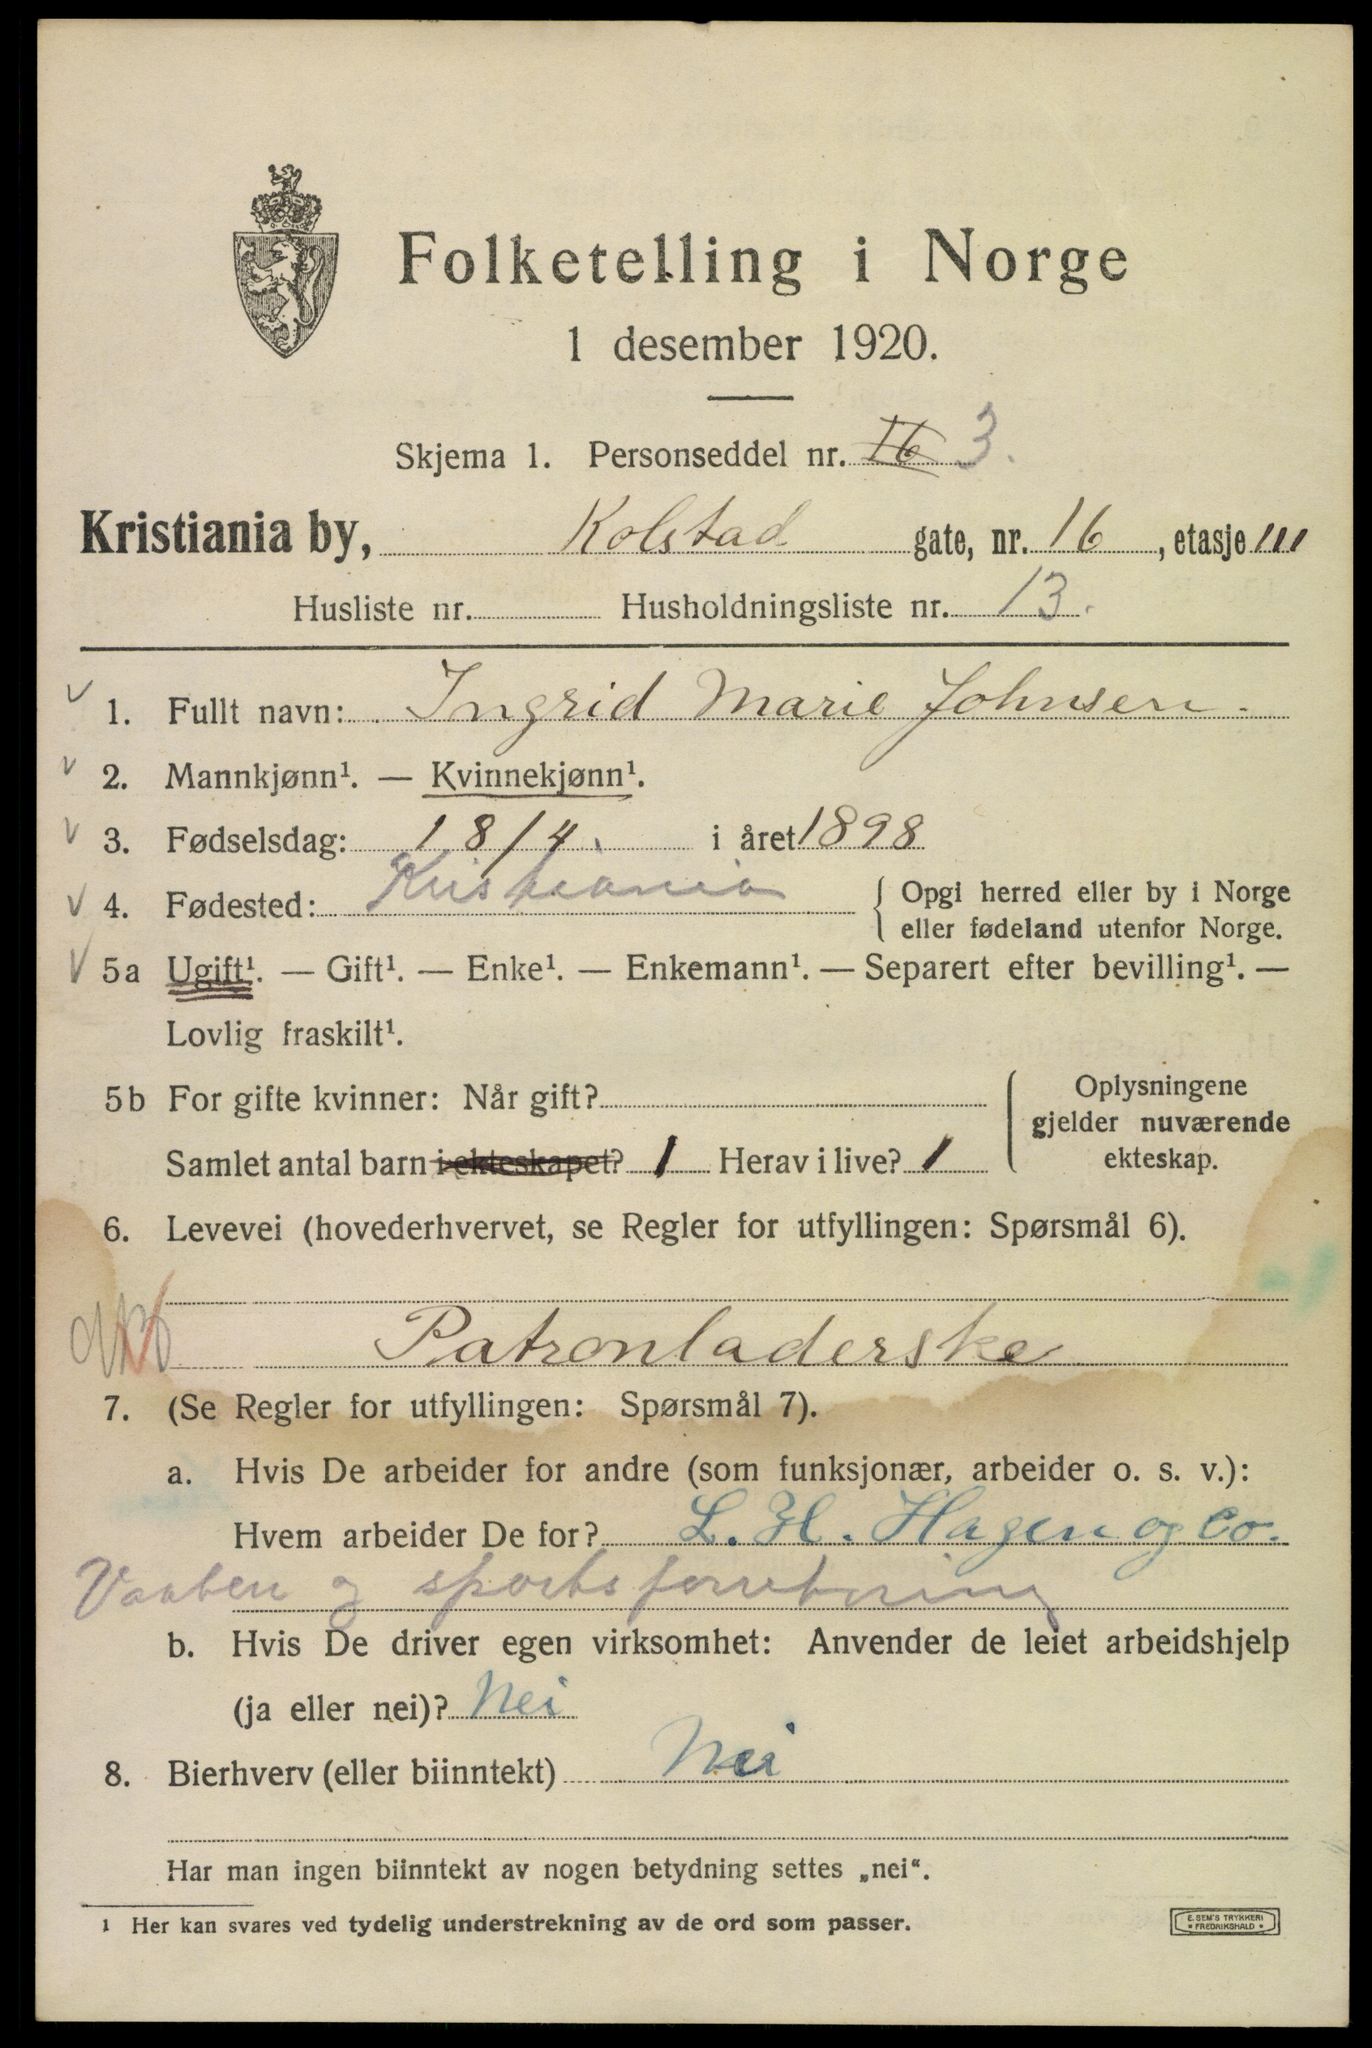 Folketelling i Norge
1 desember 1920.
Skjema 1. Personseddel nr. 16 3.
Kristiania by, Kolstad gate, nr. 16, etasje III
Husliste nr. Husholdningsliste nr. 13.
1. Fullt navn: Ingrid Marie Johnsen.
2. Mannkjønn¹. — Kvinnekjønn¹.
3. Fødselsdag: 18/4. i året 1898
4. Fødested: Kristiania { Opgi herred eller by i Norge
eller fødeland utenfor Norge.
5a Ugift¹. — Gift¹. — Enke¹. — Enkemann¹. — Separert efter bevilling¹. —
Lovlig fraskilt¹.
5b For gifte kvinner: Når gift? { Oplysningene
gjelder nuværende
Samlet antal barn i ekteskapet? 1 Herav i live? 1 ekteskap.
6. Levevei (hovederhvervet, se Regler for utfyllingen: Spørsmål 6).
Patronladerske
7. (Se Regler for utfyllingen: Spørsmål 7).
a. Hvis De arbeider for andre (som funksjonær, arbeider o. s. v.):
Hvem arbeider De for? L. H. Hagen og Co.
Vaaben og sportsforretning
b. Hvis De driver egen virksomhet: Anvender de leiet arbeidshjelp
(ja eller nei)? Nei
8. Bierhverv (eller biinntekt) Nei
Har man ingen biinntekt av nogen betydning settes „nei“.
¹ Her kan svares ved tydelig understrekning av de ord som passer.
E. SEM'S TRYKKERI
* FREDRIKSHALD *